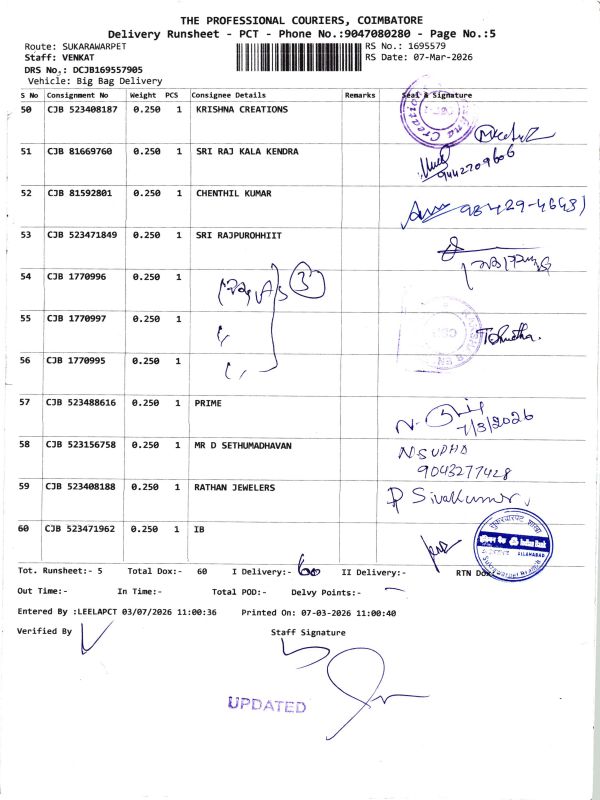 THE PROFESSIONAL COURIERS, COIMBATORE
Delivery Runsheet - PCT - Phone No.:9047080280 - Page No.:5
Route: SUKARAWARPET
RS No.: 1695579
Staff: VENKAT
RS Date: 07-Mar-2026
DRS No.: DCJB169557905
Vehicle: Big Bag Delivery
S No Consignment No Weight PCS Consignee Details Remarks Seal & Signature
50 CJB 523408187 0.250 1 KRISHNA CREATIONS
51 CJB 81669760 0.250 1 SRI RAJ KALA KENDRA
9442709606
52 CJB 81592801 0.250 1 CHENTHIL KUMAR
53 CJB 523471849 0.250 1 SRI RAJPUROHHIIT
54 CJB 1770996 0.250 1
3
55 CJB 1770997 0.250 1
56 CJB 1770995 0.250 1
57 CJB 523488616 0.250 1 PRIME
7/3/2026
58 CJB 523156758 0.250 1 MR D SETHUMADHAVAN
N SUDHA
9043277428
59 CJB 523408188 0.250 1 RATHAN JEWELERS
P Sivakumar
60 CJB 523471962 0.250 1 IB
Indian Bank
ALLAHABAD
Tot. Runsheet:- 5 Total Dox:- 60 I Delivery:- 60 II Delivery:- RTN Dox
Out Time:- In Time:- Total POD:- Delvy Points:-
Entered By :LEELAPCT 03/07/2026 11:00:36 Printed On: 07-03-2026 11:00:40
Verified By Staff Signature
UPDATED